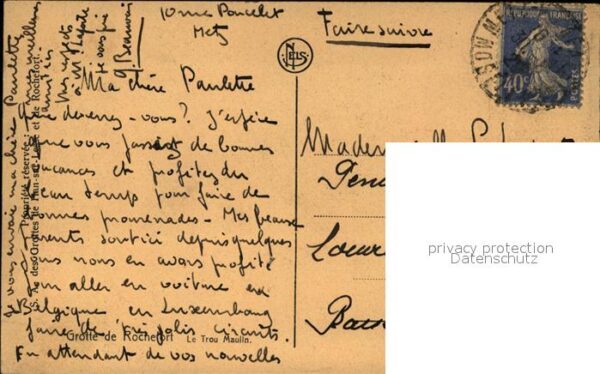 10 rue Poncelet
Metz
Faire suivre
RÉPUBLIQUE FRANÇAISE
40c
POSTES
NELS
Ma chère Paulette
Que devenez-vous? J'espère
que vous passez de bonnes
vacances et profitez du
beau temps pour faire de
bonnes promenades - Mes beaux-
parents sont ici depuis quelques
jours nous en avons profité
pour aller en voiture en
Belgique en Luxembourg
faire de très jolis circuits.
En attendant de vos nouvelles
je vous envoie ma chère Paulette
mes meilleures
amitiés
Mes respects
à Mr
je vous prie
Mademoiselle
Propriété réservée
S. A. des Grottes de Han-sur-Lesse et de Rochefort.
Grotte de Rochefort Le Trou Maulin.
privacy protection
Datenschutz